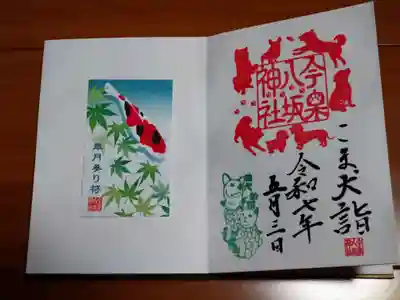 今泉
八坂
神社
こま犬詣
令和七年
五月三日
皐月参り符